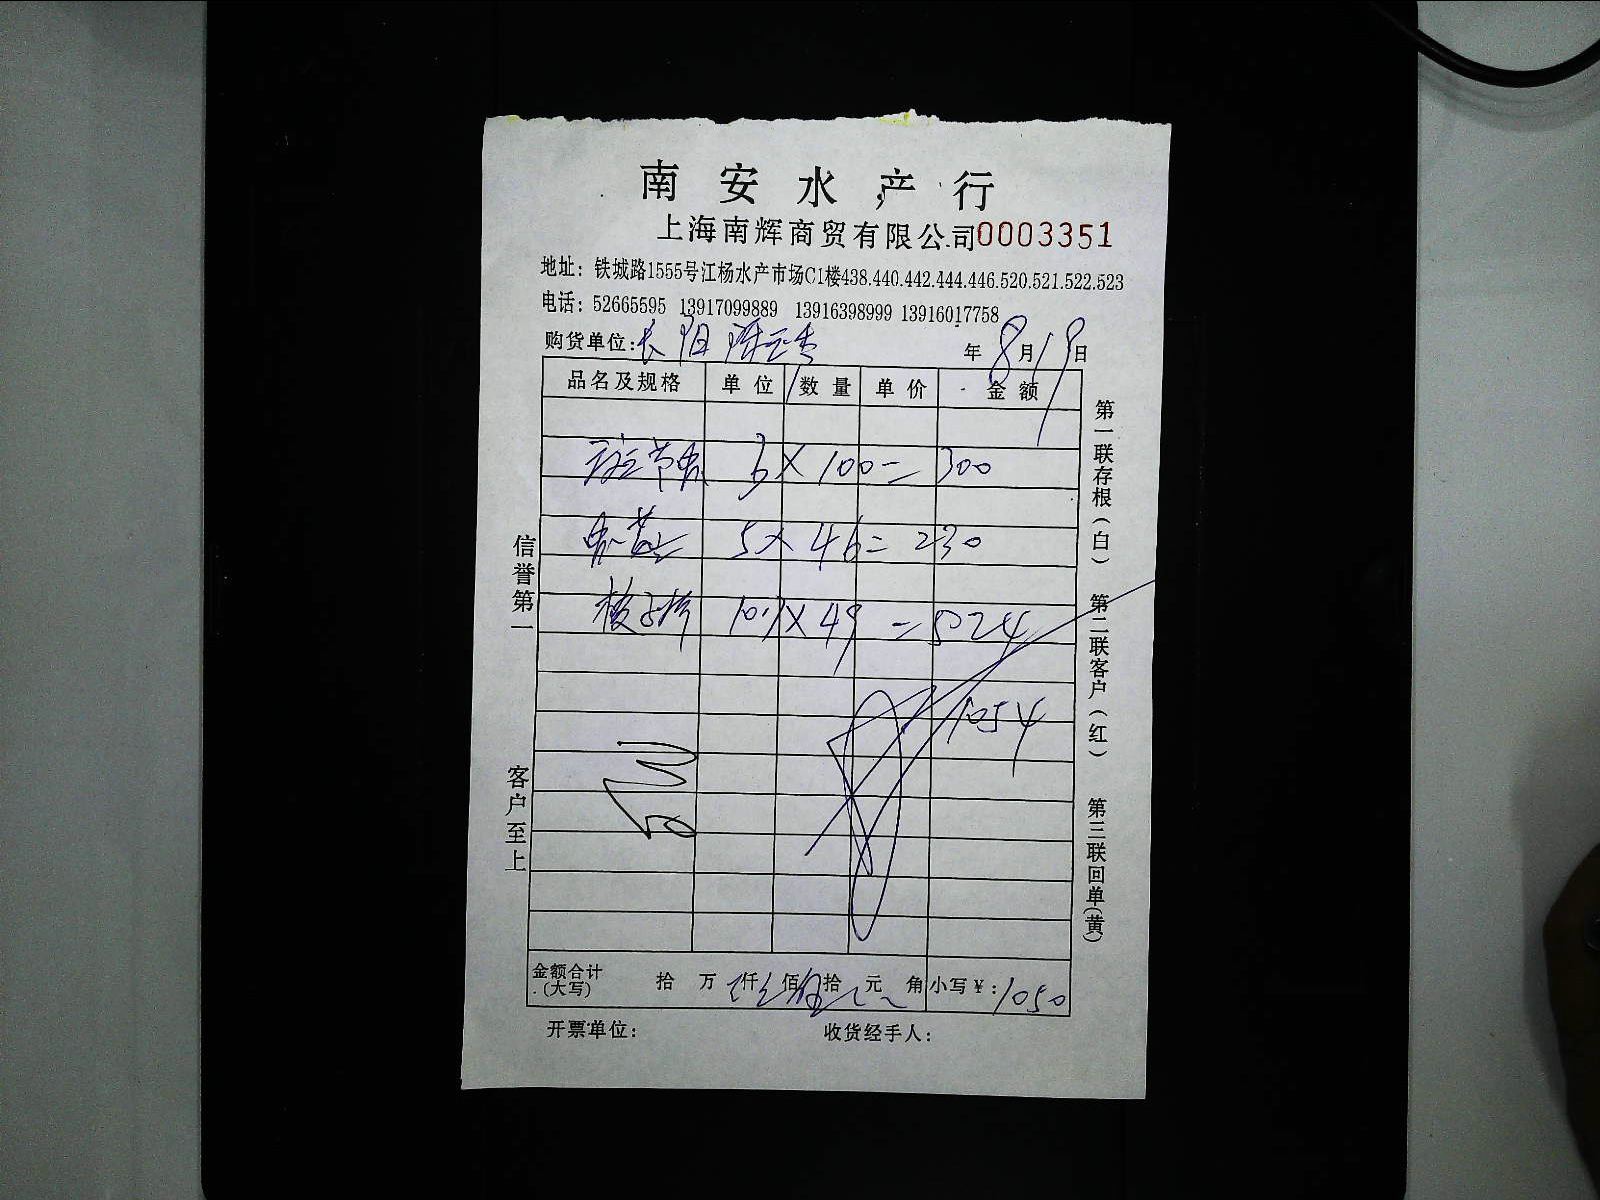 南安水产行
上海南辉商贸有限公司0003351
地址：铁城路1555号江杨水产市场C1楼438.440.442.444.446.520.521.522.523
电话：52665595 13917099889 13916398999 13916017758
购货单位：长阳 年8月19日
品名及规格 单位 数量 单价 金额
节 3×100=300
5×46=230
×49=524
1054
金额合计(大写) 拾 万 仟 佰 拾 元 角 小写¥：1050
开票单位： 收货经手人：
信誉第一 客户至上
第一联存根(白) 第二联客户(红) 第三联回单(黄)